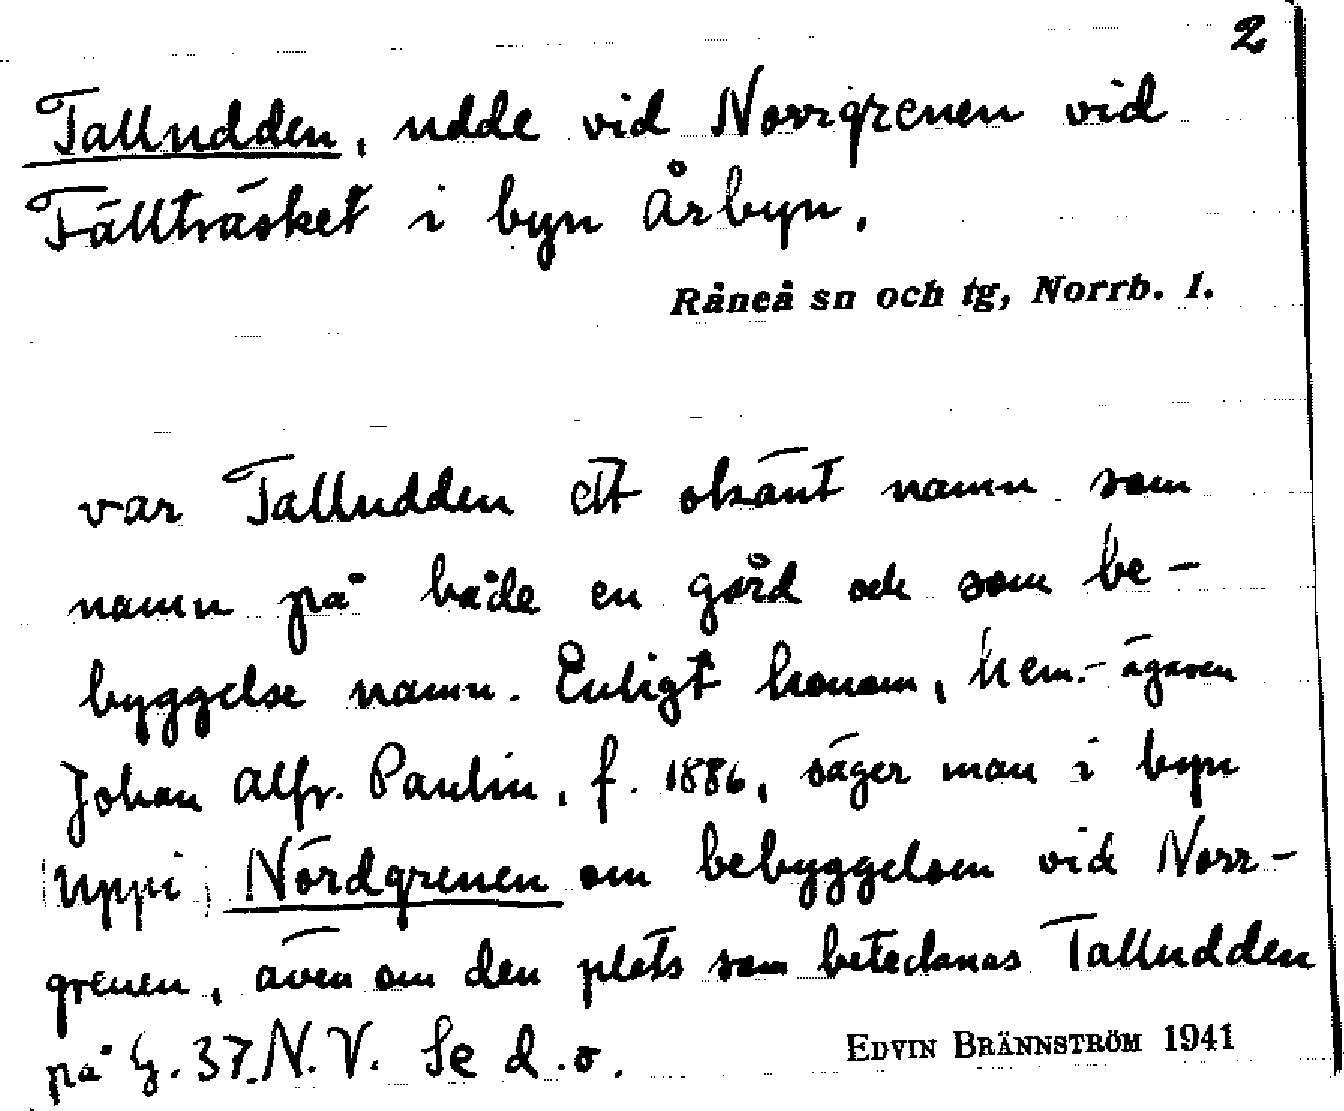 2
Talludden, udde vid Norrgrenen vid
Fällträsket i byn Årbyn.
Råneå sn och tg, Norrb. l.
var Talludden ett okänt namn som
namn på både en gård och som be-
byggelse namn. Enligt honom, hem.-ägaren
Johan Alfr. Paulin, f. 1886, säger man i byn
uppi Nördgrenen om bebyggelsen vid Norr-
grenen, även om den plats som betecknas Talludden
på G. 37.N.V. Se d.o.
EDVIN BRÄNNSTRÖM 1941